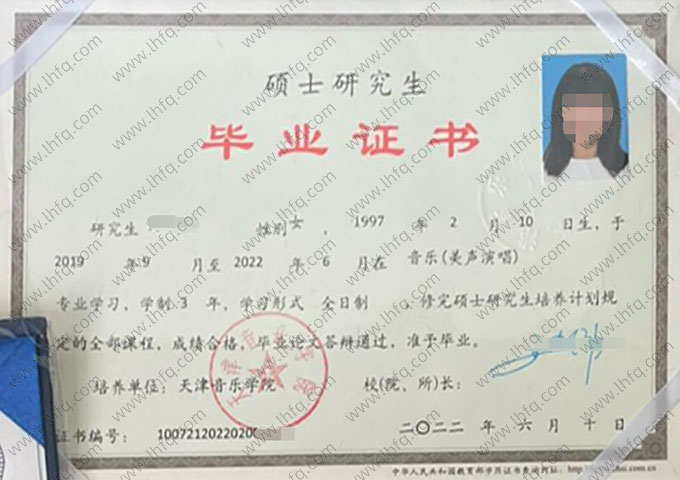 硕士研究生
毕业证书
研究生 性别 女 , 1997 年 2 月 10 日生,于
2019 年 9 月至 2022 年 6 月在 音乐(美声演唱)
专业学习,学制 3 年,学习形式 全日制 ,修完硕士研究生培养计划规
定的全部课程,成绩合格,毕业论文答辩通过,准予毕业。
培养单位:天津音乐学院 校(院、所)长:
证书编号: 1007212022020 二〇二二 年 六 月 十 日
中华人民共和国教育部学历证书查询网址:
www.lhfq.com